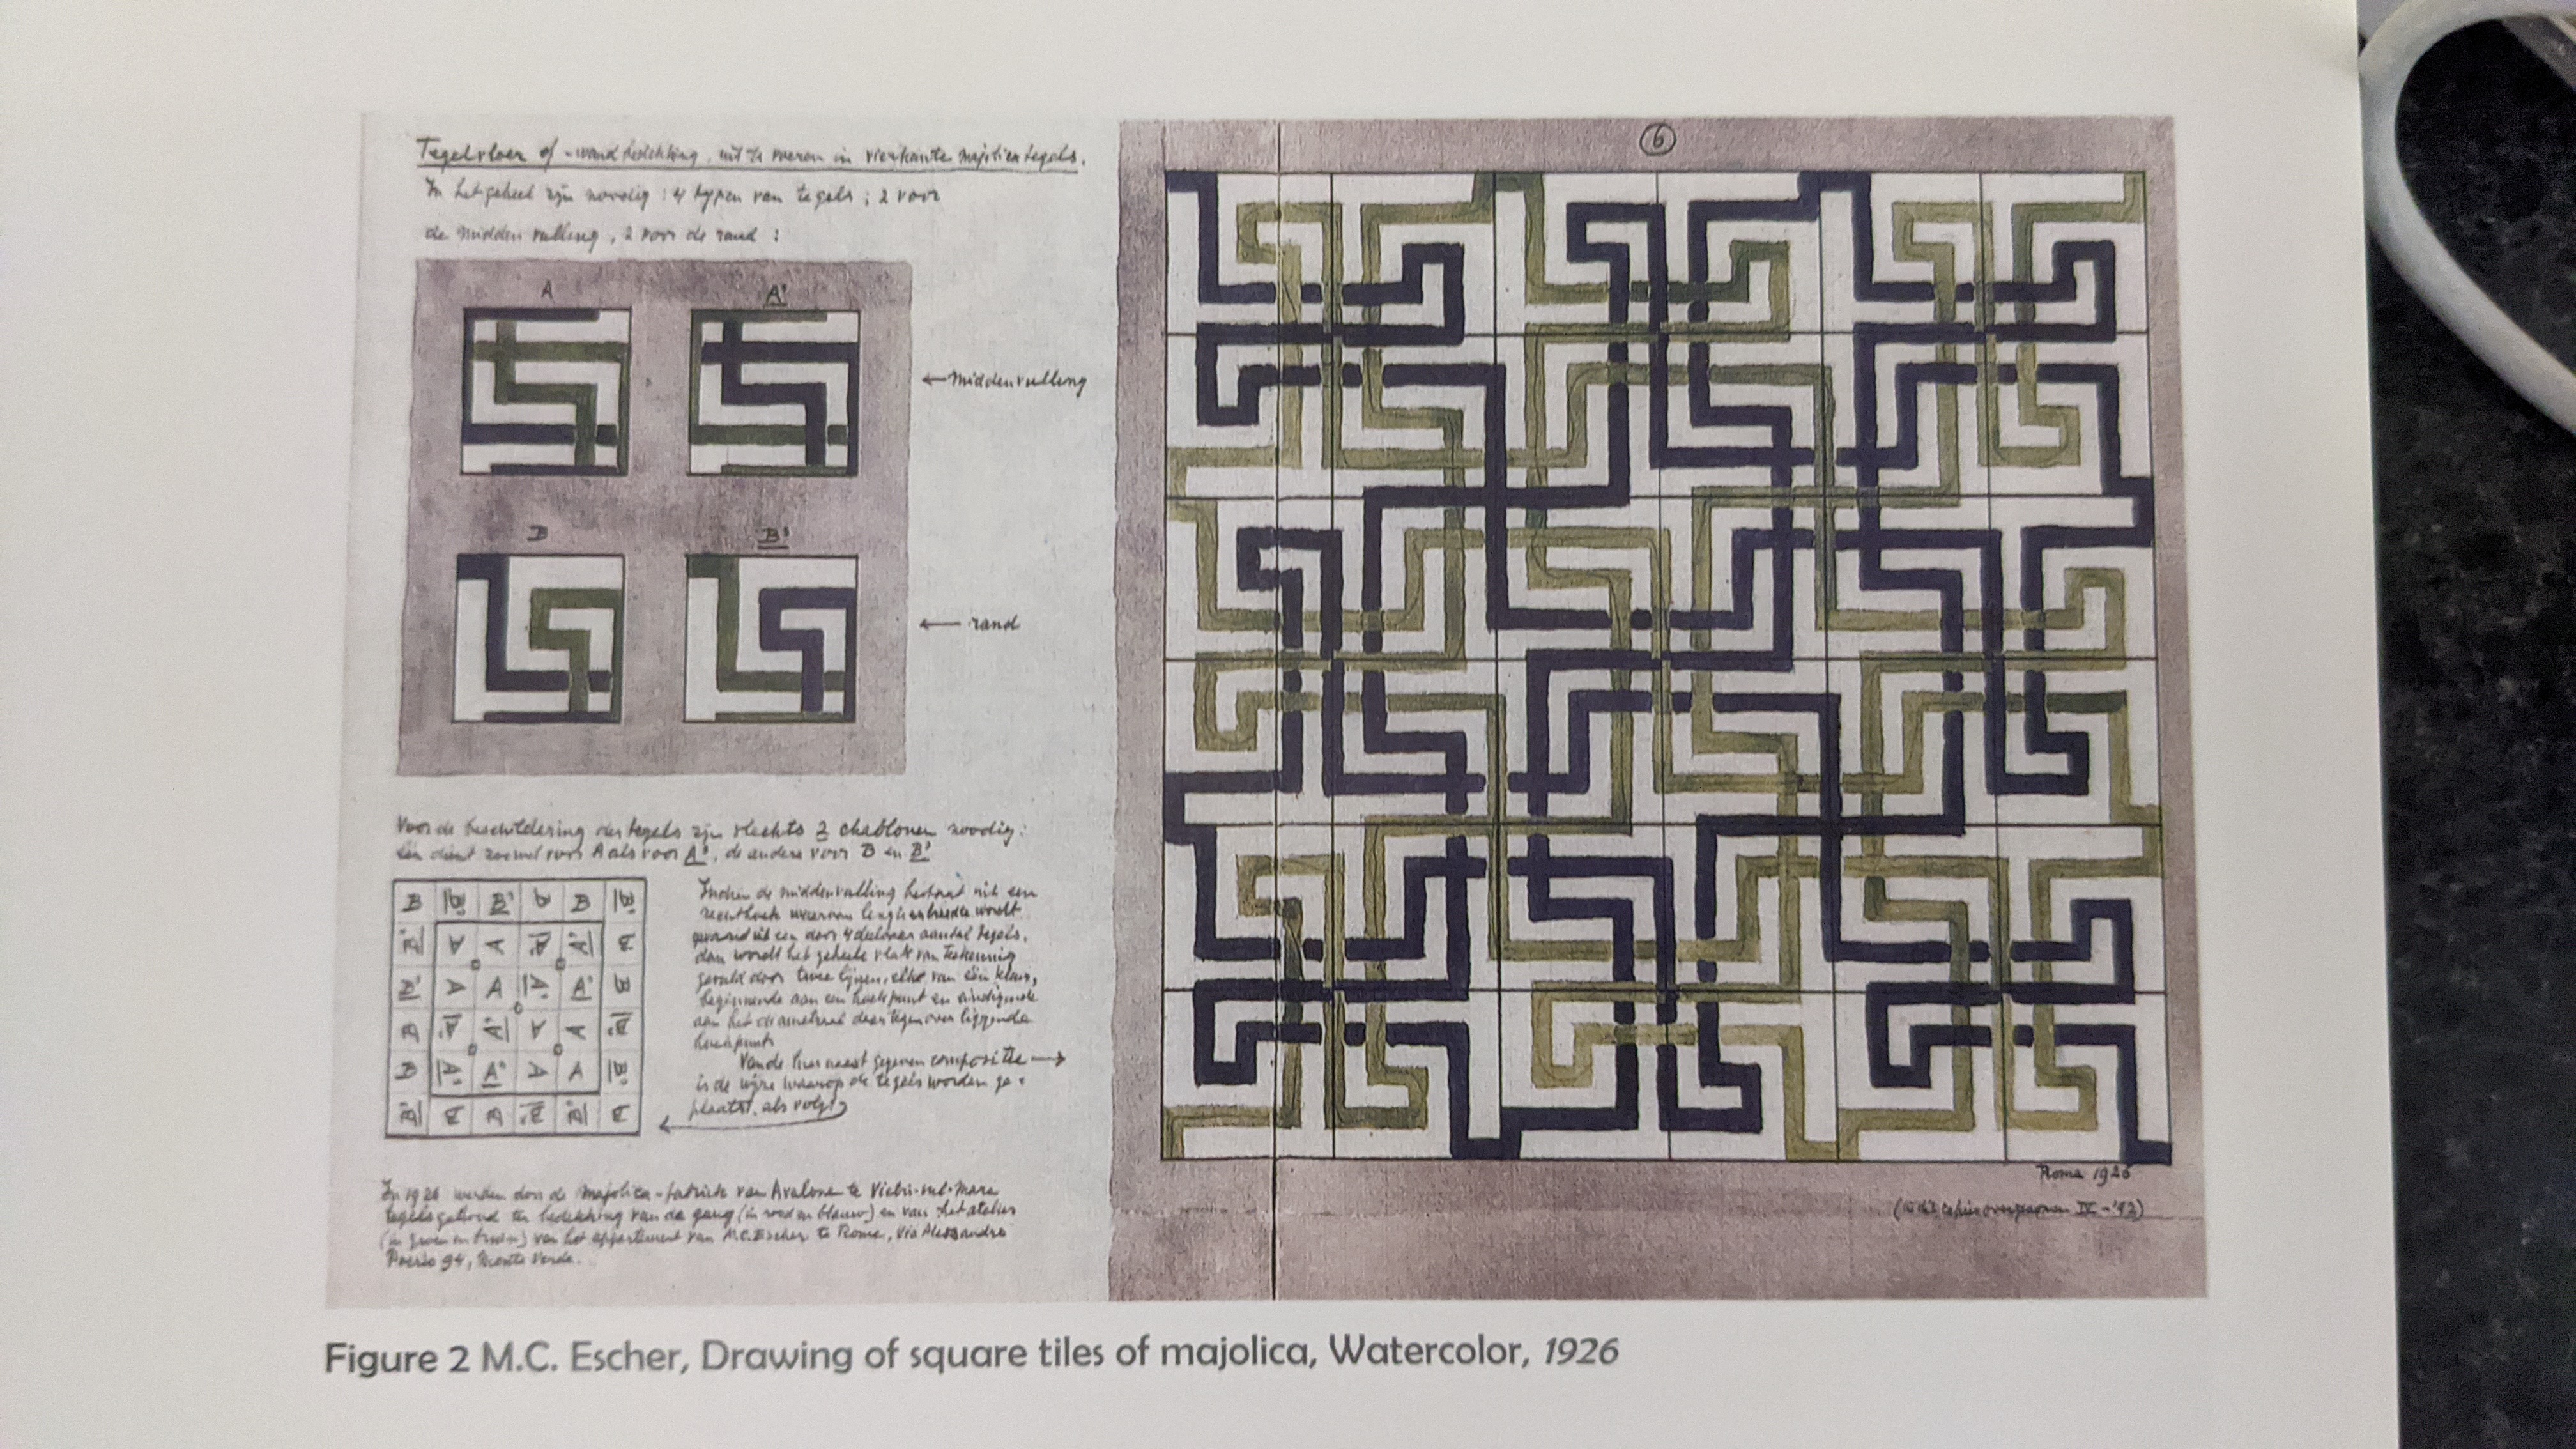 Tegelvloer of -wandbedekking, uit te voeren in vierkante majolica tegels.
In het geheel zijn noodig: 4 typen van tegels; 2 voor
de middenvulling, 2 voor de rand:
A A'
← middenvulling
B B'
← rand
Voor de beschildering der tegels zijn slechts 2 chablonen noodig:
één dient zoowel voor A als voor A', de andere voor B en B'
Indien de middenvulling bestaat uit een
rechthoek waarvan lengte en breedte wordt
gevormd uit een door 4 deelbaar aantal tegels,
dan wordt het geheele vlak van teekening
gevuld door twee lijnen, elke van één kleur,
beginnende aan een hoekpunt en eindigende
aan het diametraal daartegenover liggende
hoekpunt.
Van de hiernaast gegeven compositie →
is de wijze waarop de tegels worden ge-
plaatst, als volgt
In 1926 werden door de majolica-fabriek van Avalone te Vietri-sul-Mare
tegels geleverd ter bedekking van de gang (in rood en blauw) en van het atelier
(in groen en bruin) van het appartement van M.C. Escher te Rome, Via Alessandro
Poerio 94, Monte Verde.
6
Roma 1926
IV-'42)
Figure 2 M.C. Escher, Drawing of square tiles of majolica, Watercolor, 1926